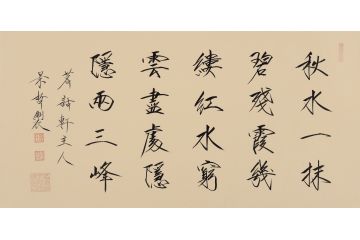 秋水一抹
碧殘霞幾
縷紅水窮
雲盡處隱
隱兩三峰